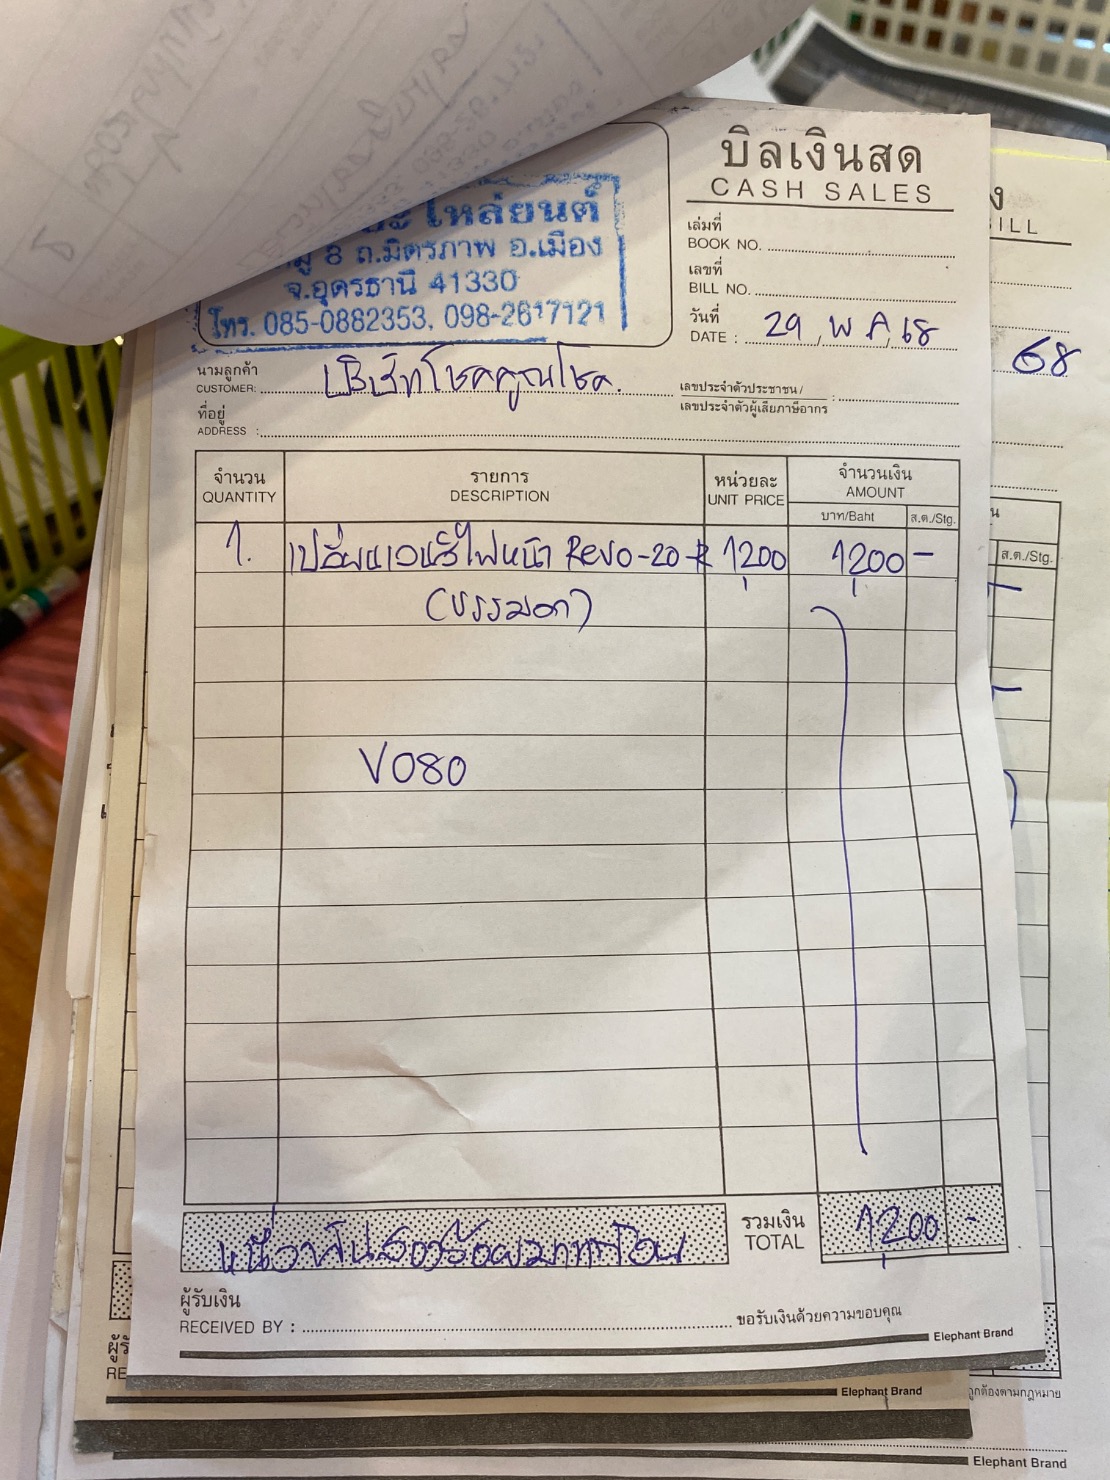 บิลเงินสด
CASH SALES
โหล่ยนต์
8 ถ.มิตรภาพ อ.เมือง
จ.อุดรธานี 41330
โทร. 085-0882353, 098-2617121
เล่มที่
BOOK NO.
เลขที่
BILL NO.
วันที่
DATE : 29 พ.ค. 68
นามลูกค้า
CUSTOMER: บริษัทโชคคูณโชค.
เลขประจำตัวประชาชน /
เลขประจำตัวผู้เสียภาษีอากร :
ที่อยู่
ADDRESS :
จำนวน รายการ หน่วยละ จำนวนเงิน
QUANTITY DESCRIPTION UNIT PRICE AMOUNT
บาท/Baht ส.ต./Stg.
1. ไฟหน้า Revo-20-R 1200 1200 -
V080
หนึ่งพันสองร้อยบาทถ้วน
รวมเงิน
TOTAL 1200 -
ผู้รับเงิน
RECEIVED BY :
ขอรับเงินด้วยความขอบคุณ
Elephant Brand
ILL
68
ส.ต./Stg.
RE
Elephant Brand
ถูกต้องตามกฎหมาย
Elephant Brand